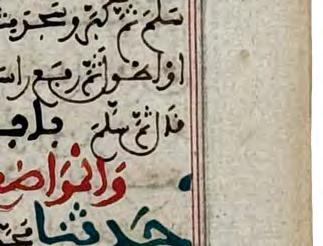 سلم ثم كبر وسجد
او اطول ثم رفع راسه
ثم سلم باب
والمواضع
حدثنا